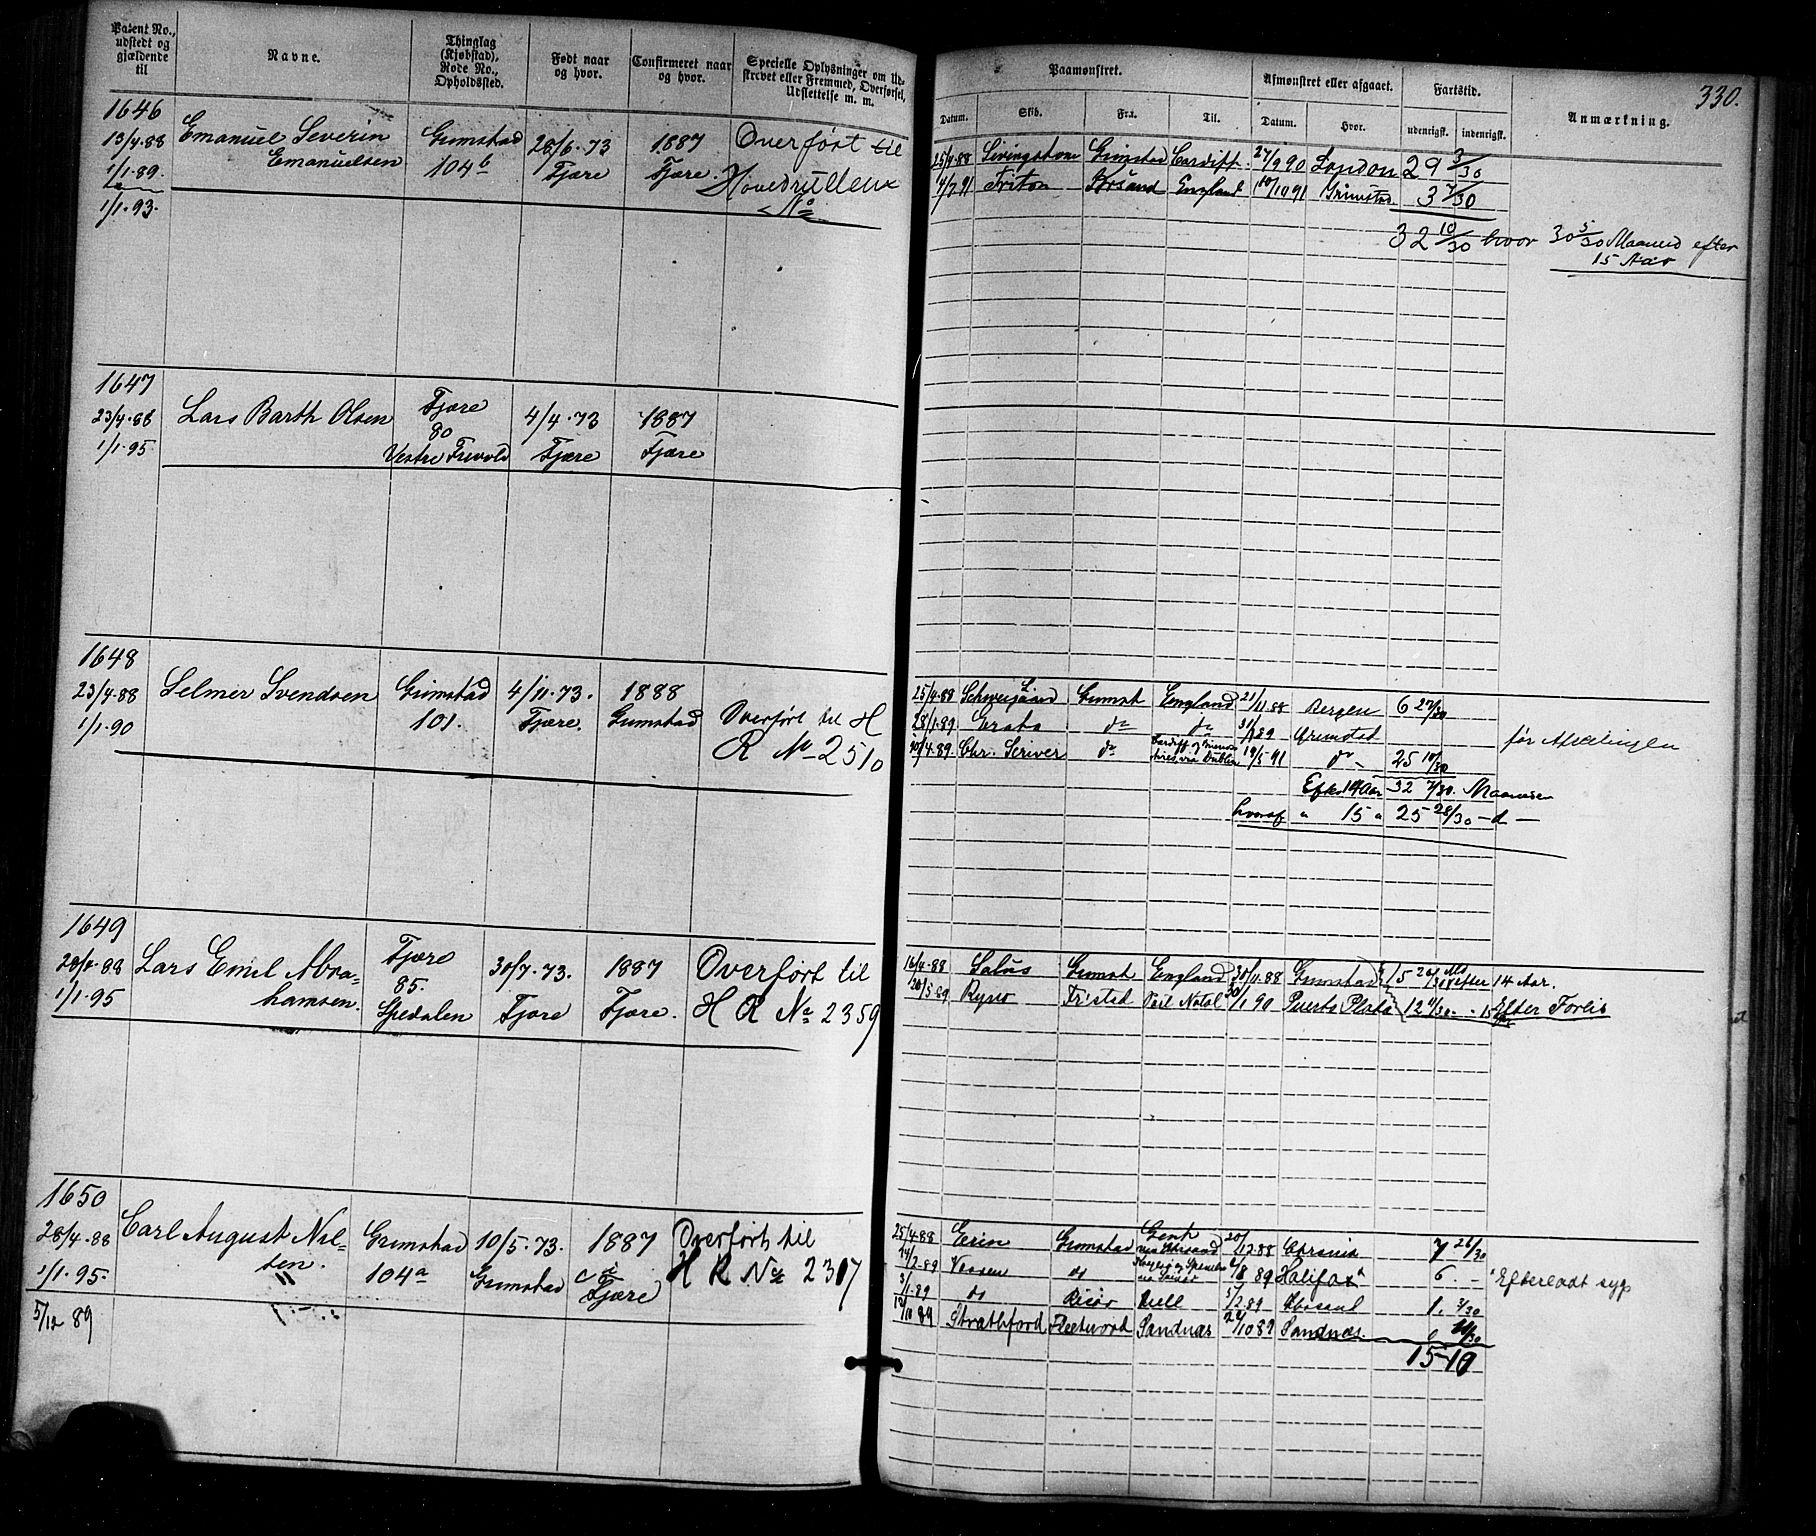 Patent No.,
udstedt og
gjældende
til
Navne.
Thinglag
(Kjøbstad),
Rode No.,
Opholdssted.
Født naar
og hvor.
Confirmeret naar
og hvor.
Specielle Oplysninger om Ud-
strevet eller Fremmed, Overførsel,
Udslettelse m. m.
1646
13/4.88
1/1.89.
1/1.93.
Emanuel Severin
Emanuelsen
Grimstad
104b
28/6.73
Fjære
1887
Fjære.
Overført til
Hovedrullens
No
1647
23/4.88
1/1.95.
Lars Barth Olsen
Fjære
80
Vestre Frivold
4/4.73
Fjære
1887
Fjære
1648
23/4.88
1/1.90
Selmer Svendsen
Grimstad
101.
4/11.73.
Fjære.
1888
Grimstad
Overført til H
R No 2510
1649
28/4.88
1/1.95
Lars Emil Abra-
hamsen.
Fjære
85.
Spedalen
30/7.73.
Fjære
1887
Fjære.
Overført til
H R No 2359
1650
28/4.88
1/1.95.
5/12 89
Carl August Nil-
sen.
Grimstad
104a
10/5.73.
Grimstad
1887
Fjære
Overført til
H R No 2317
330.
Paamønstret.
Afmønstret eller afgaaet.
Fartstid.
Anmærkning.
Datum.
Skib.
Fra.
Til.
Datum.
Hvor.
udenrigsk.
indenrigsk.
25/4.88 Livingstone Grimstad Cardiff. 27/9 90 London 29 3/30
4/7.91 Triton England 10/10 91 Grimstad 3 7/30
32 10/30 hvor 30 5/30 Maaned efter
15 Aar
25/4.88 Schweigaard Grimst England 21/11.88 Bergen 6 27/30
28/1.89 do do 31/ 89 Grimstad før Afseilingen
4.89 Chr. Scriver do via Dublin 19/5.91 do 25 10/30
Efter 14 Aar 32 7/30. Maaneder
hvoraf " 15 " 25 28/30 - d -
16/4.88 Salus Grimst England 30/11.88 Grimstad efter 14 Aar.
20/5.89 Natal 1 90 Puerto Plata 12 Efter Forlis
25/4.88 Grimstad 20/12.88 7 26/30
14/2.89 do 8 89 Halifax 6. - "Efterladt syg
3/1.89 do Risør 5/2 89 1. 2/30
89 Strathford Fleetwood Sandnæs 10 89 Sandnæs.
15-10